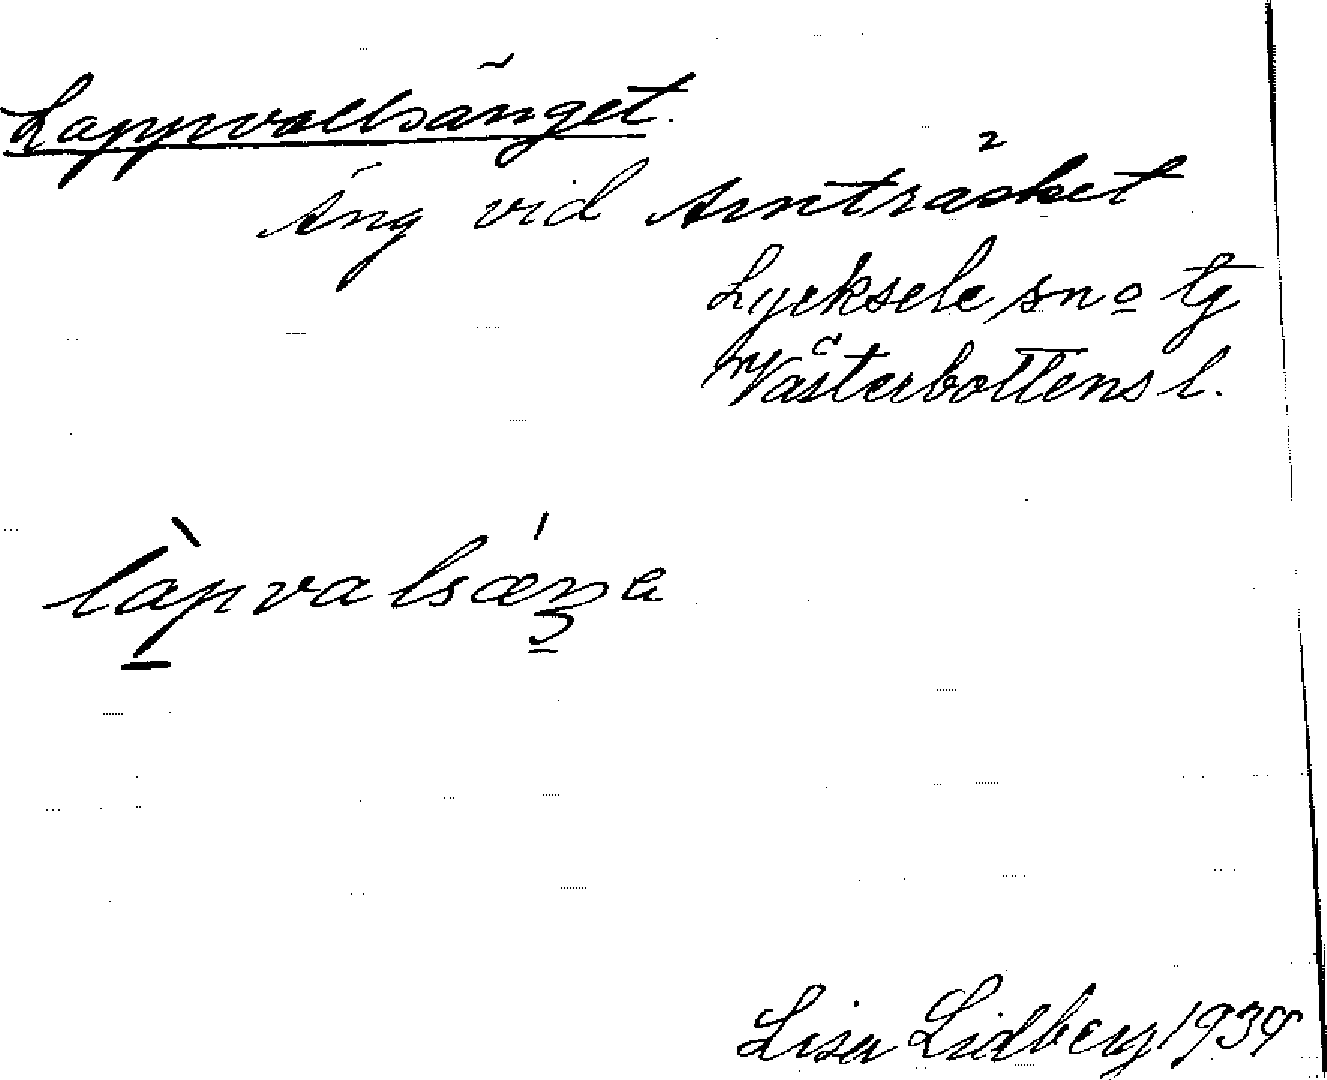 Lappvallsänget.
Äng vid Arnträsket
Lycksele sn o tg
Västerbottens l.
làpvalsǽŋa
Lisa Lidberg 1939